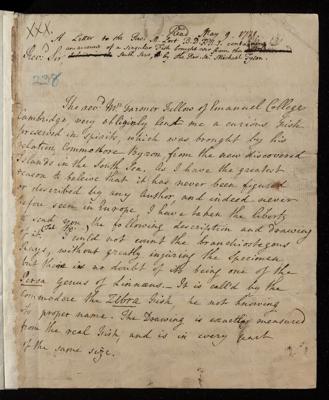 XXX.
Read May 9. 1771.
A Letter to the Rev. M. Lort B.D. F.R.S. containing
an account of a singular Fish brought from the
South Seas, by the Rev. Mr. Michael Tyson.
Revd. Sir,
238
The revd. Mr Farmer Fellow of Emanuel College
Cambridge very obligingly lent me a curious Fish
preserved in Spirits, which was brought by his
relation Commodore Byron from the new discovered
Islands in the South Sea. As I have the greatest
reason to beleive that it has never been figured
or described by any Author, and indeed never
before seen in Europe, I have taken the liberty
to send you the following description and Drawing
of it.
I could not count the branchiostegous
Rays, without greatly injuring the Specimen,
but there is no doubt of its being one of the
Perca genus of Linnæus. It is call'd by the
Commodore the Zebra Fish, he not knowing
its proper name. The Drawing is exactly measured
from the real Fish, and is in every part
of the same size.